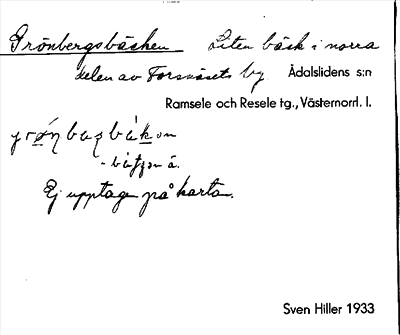 Grönbergsbäcken Liten bäck i norra
delen av Forsnäsets by Ådalslidens s:n
Ramsele och Resele tg., Västernorrl. l.
Ej upptagen på karta.
Sven Hiller 1933